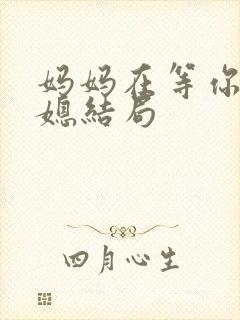 妈妈在等你
媳结局
四月心生